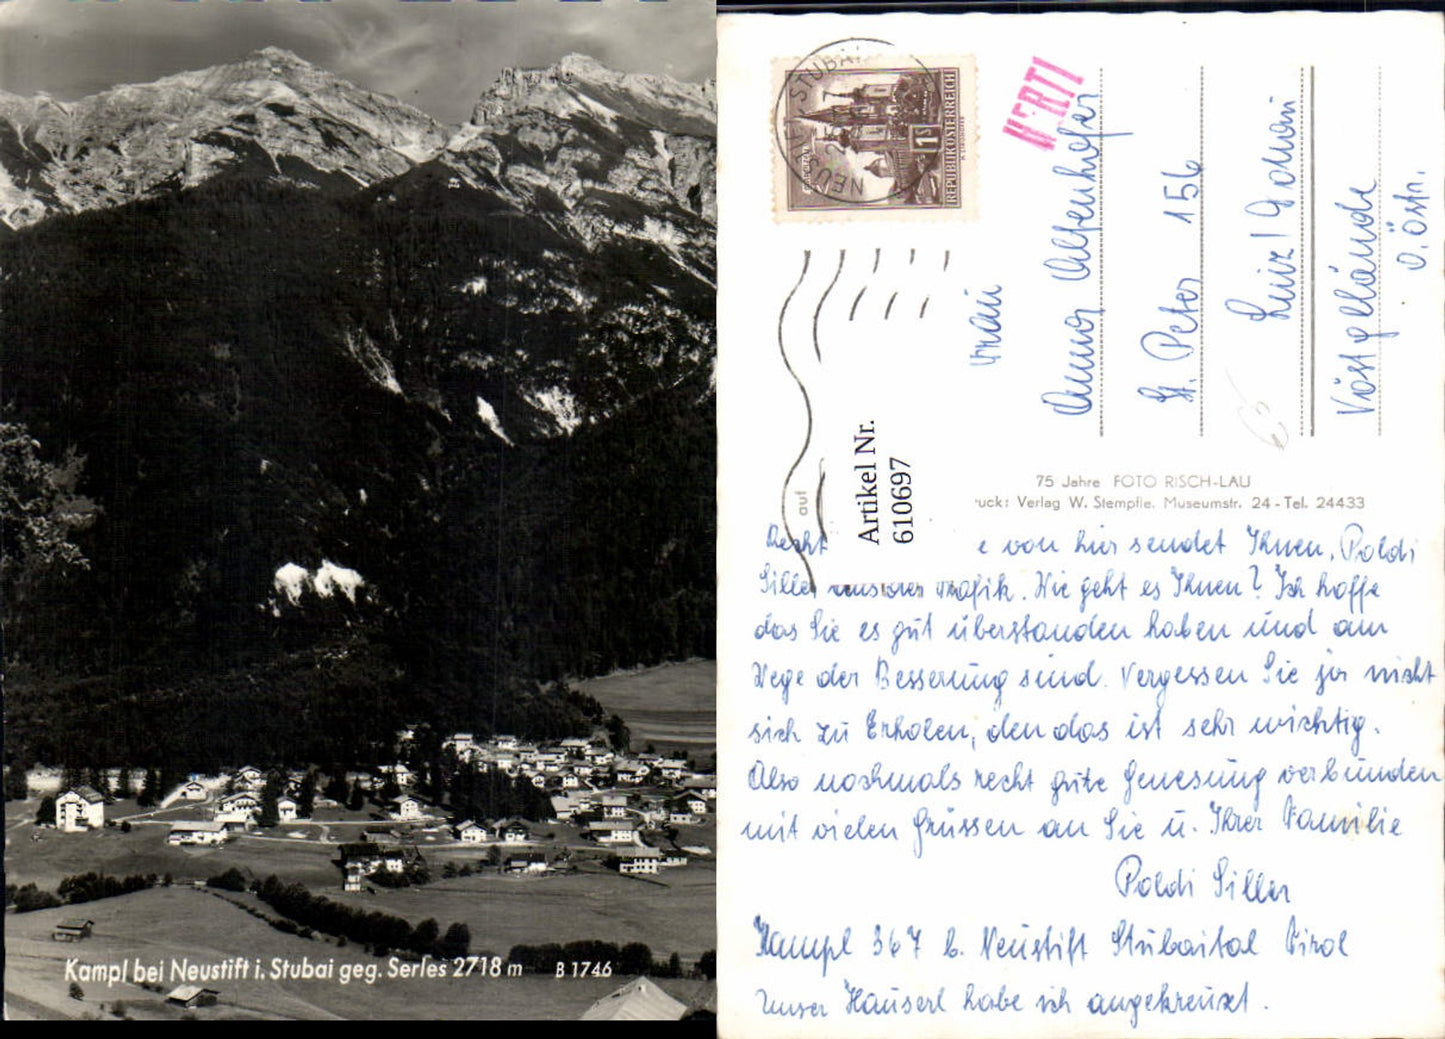 Kampl bei Neustift i. Stubai geg. Serles 2718 m B 1746
NEUSTIFT STUBAI
REPUBLIK ÖSTERREICH
1 S
Frau
Anna
St. Peter 156
Linz / Donau
Vöstgelände
O.Östr.
auf
Artikel Nr.
610697
75 Jahre FOTO RISCH-LAU
ruck: Verlag W. Stempfle. Museumstr. 24 - Tel. 24433
Recht e von hier sendet Ihnen, Poldi
Siller aus der Trafik. Wie geht es Ihnen? Ich hoffe
das Sie es gut überstanden haben und am
Wege der Besserung sind. Vergessen Sie ja nicht
sich zu Erholen, den das ist sehr wichtig.
Also nochmals recht gute Genesung verbunden
mit vielen Grüssen an Sie u. Ihrer Familie
Poldi Siller
Kampl 367 b. Neustift Stubaital Tirol
unser Häuserl habe ich angekreuzt.